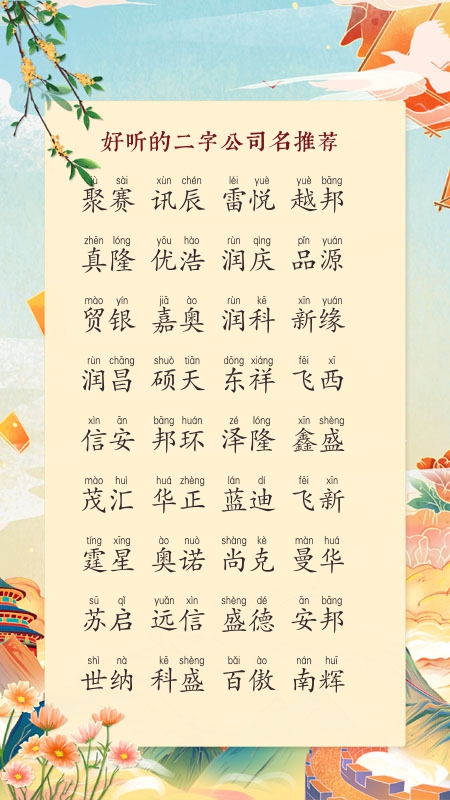 好听的二字公司名推荐
jù sài xùn chén léi yuè yuè bāng
聚赛 讯辰 雷悦 越邦
zhēn lóng yōu hào rùn qìng pǐn yuán
真隆 优浩 润庆 品源
mào yín jiā ào rùn kē xīn yuán
贸银 嘉奥 润科 新缘
rùn chāng shuò tiān dōng xiáng fēi xī
润昌 硕天 东祥 飞西
xìn ān bāng huán zé lóng xīn shèng
信安 邦环 泽隆 鑫盛
mào huì huá zhèng lán dí fēi xīn
茂汇 华正 蓝迪 飞新
tíng xīng ào nuò shàng kè màn huá
霆星 奥诺 尚克 曼华
sū qǐ yuǎn xìn shèng dé ān bāng
苏启 远信 盛德 安邦
shì nà kē shèng bǎi ào nán huī
世纳 科盛 百傲 南辉